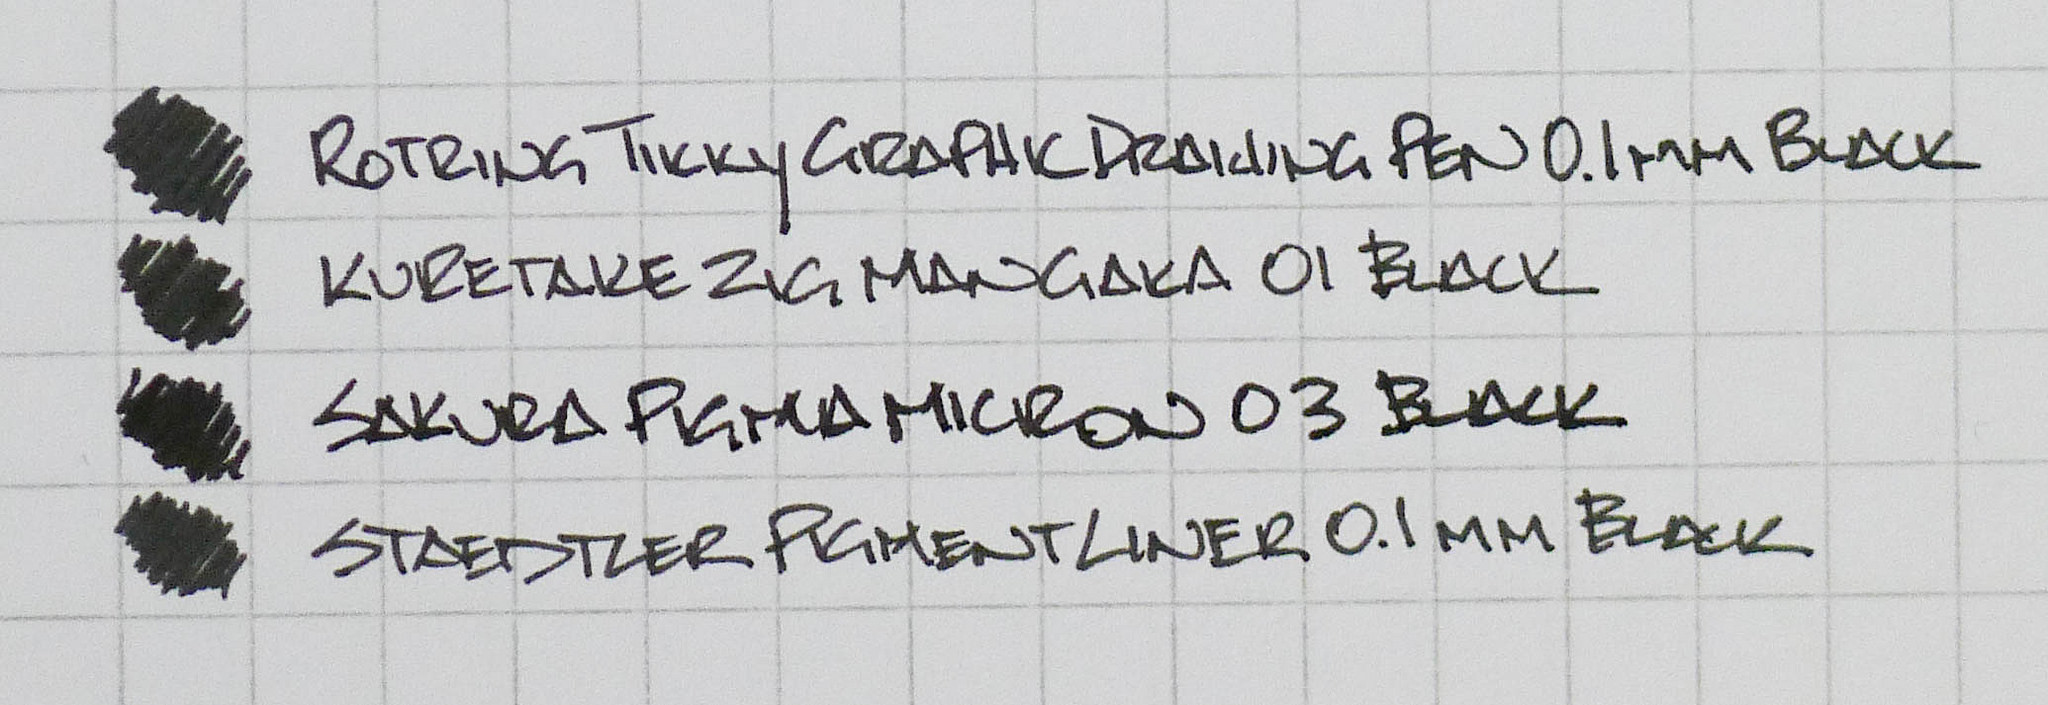 ROTRING TIKKY GRAPHIC DRAWING PEN 0.1MM BLACK
KURETAKE ZIG MANGAKA 01 BLACK
SAKURA PIGMA MICRON 03 BLACK
STAEDTLER PIGMENT LINER 0.1MM BLACK